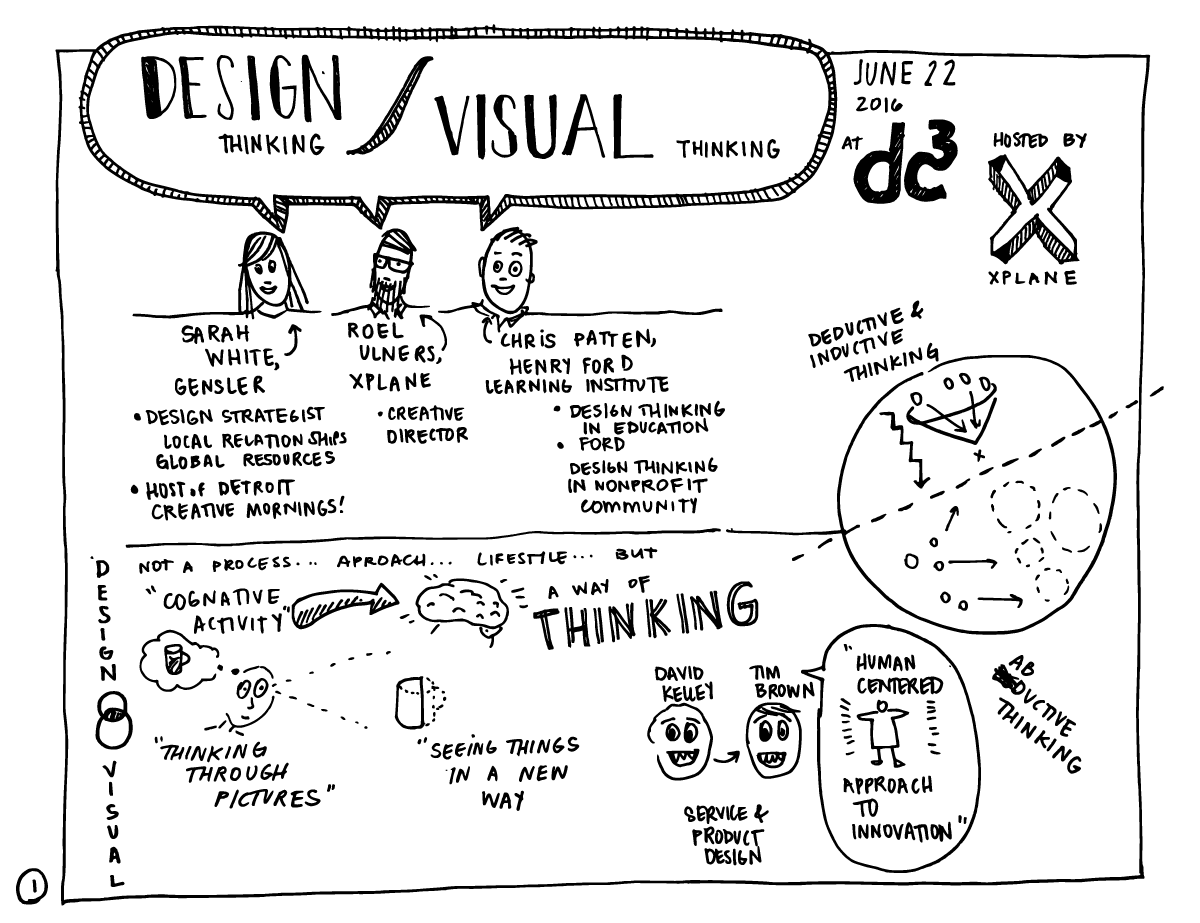 DESIGN
THINKING
VISUAL THINKING
JUNE 22
2016
AT dc3
HOSTED BY
X
XPLANE
SARAH
WHITE,
GENSLER
• DESIGN STRATEGIST
LOCAL RELATIONSHIPS
GLOBAL RESOURCES
• HOST of DETROIT
CREATIVE MORNINGS!
ROEL
ULNERS,
XPLANE
• CREATIVE
DIRECTOR
CHRIS PATTEN,
HENRY FORD
LEARNING INSTITUTE
• DESIGN THINKING
IN EDUCATION
• FORD
DESIGN THINKING
IN NONPROFIT
COMMUNITY
DEDUCTIVE &
INDUCTIVE
THINKING
x
DESIGN
VISUAL
NOT A PROCESS... APROACH... LIFESTYLE... BUT
"COGNATIVE
ACTIVITY"
A WAY OF
THINKING
"THINKING
THROUGH
PICTURES"
"SEEING THINGS
IN A NEW
WAY
DAVID
KELLEY
TIM
BROWN
SERVICE &
PRODUCT
DESIGN
"HUMAN
CENTERED
APPROACH
TO
INNOVATION"
ABDUCTIVE
THINKING
1